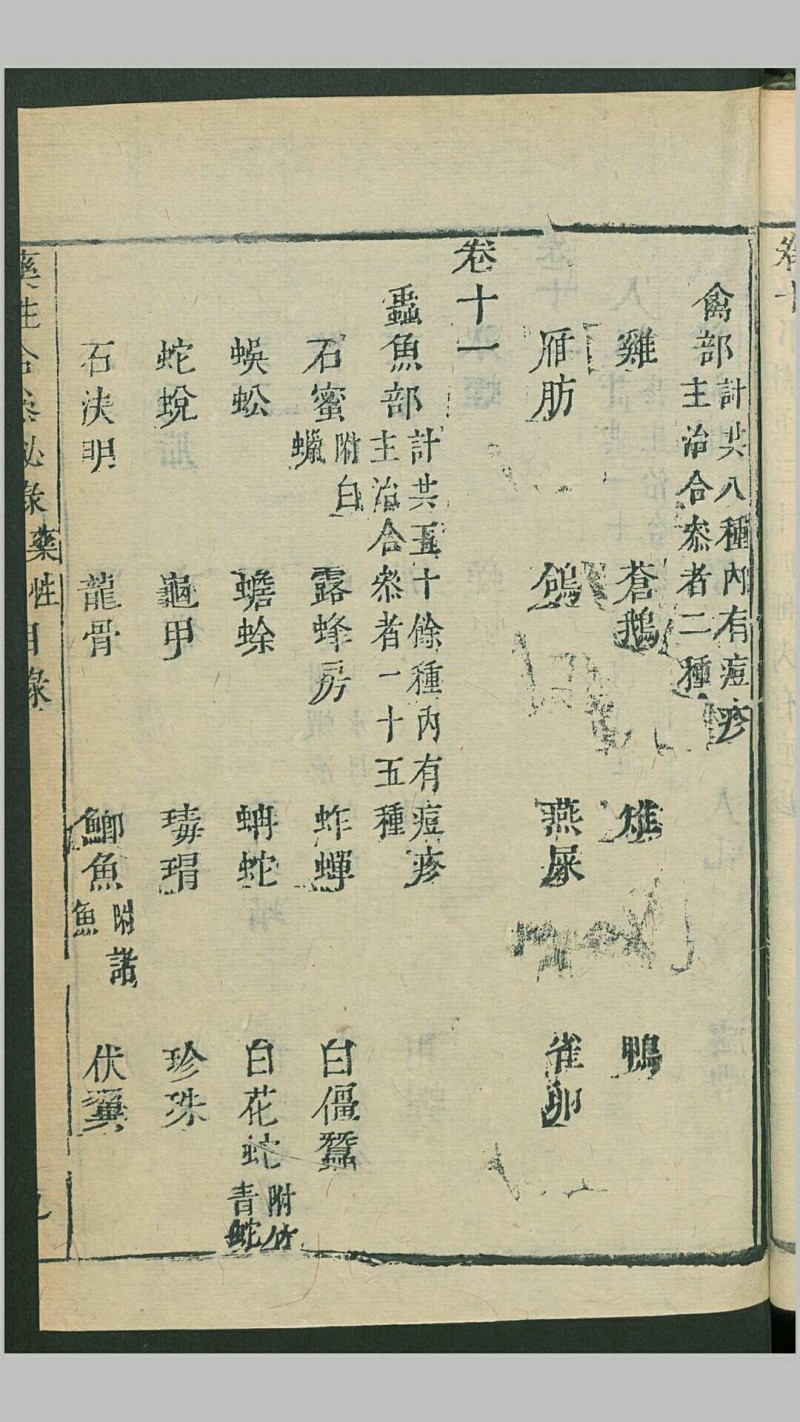 禽部計共八種內有痘疹主治合叅者二種
雞 蒼鵝 雄 鴨
雁肪 鴿 燕屎 雀卵
卷十一
蟲魚部計共五十餘種內有痘疹主治合叅者一十五種
石蜜附白蠟 露蜂房 蚱蟬 白僵蠶
蜈蚣 蟾蜍 蚺蛇 白花蛇附竹青蛇
蛇蛻 龜甲 瑇瑁 珍珠
石決明 龍骨 鯽魚附諸魚 伏翼
藥性合叅秘錄 藥性目錄 九
卷十